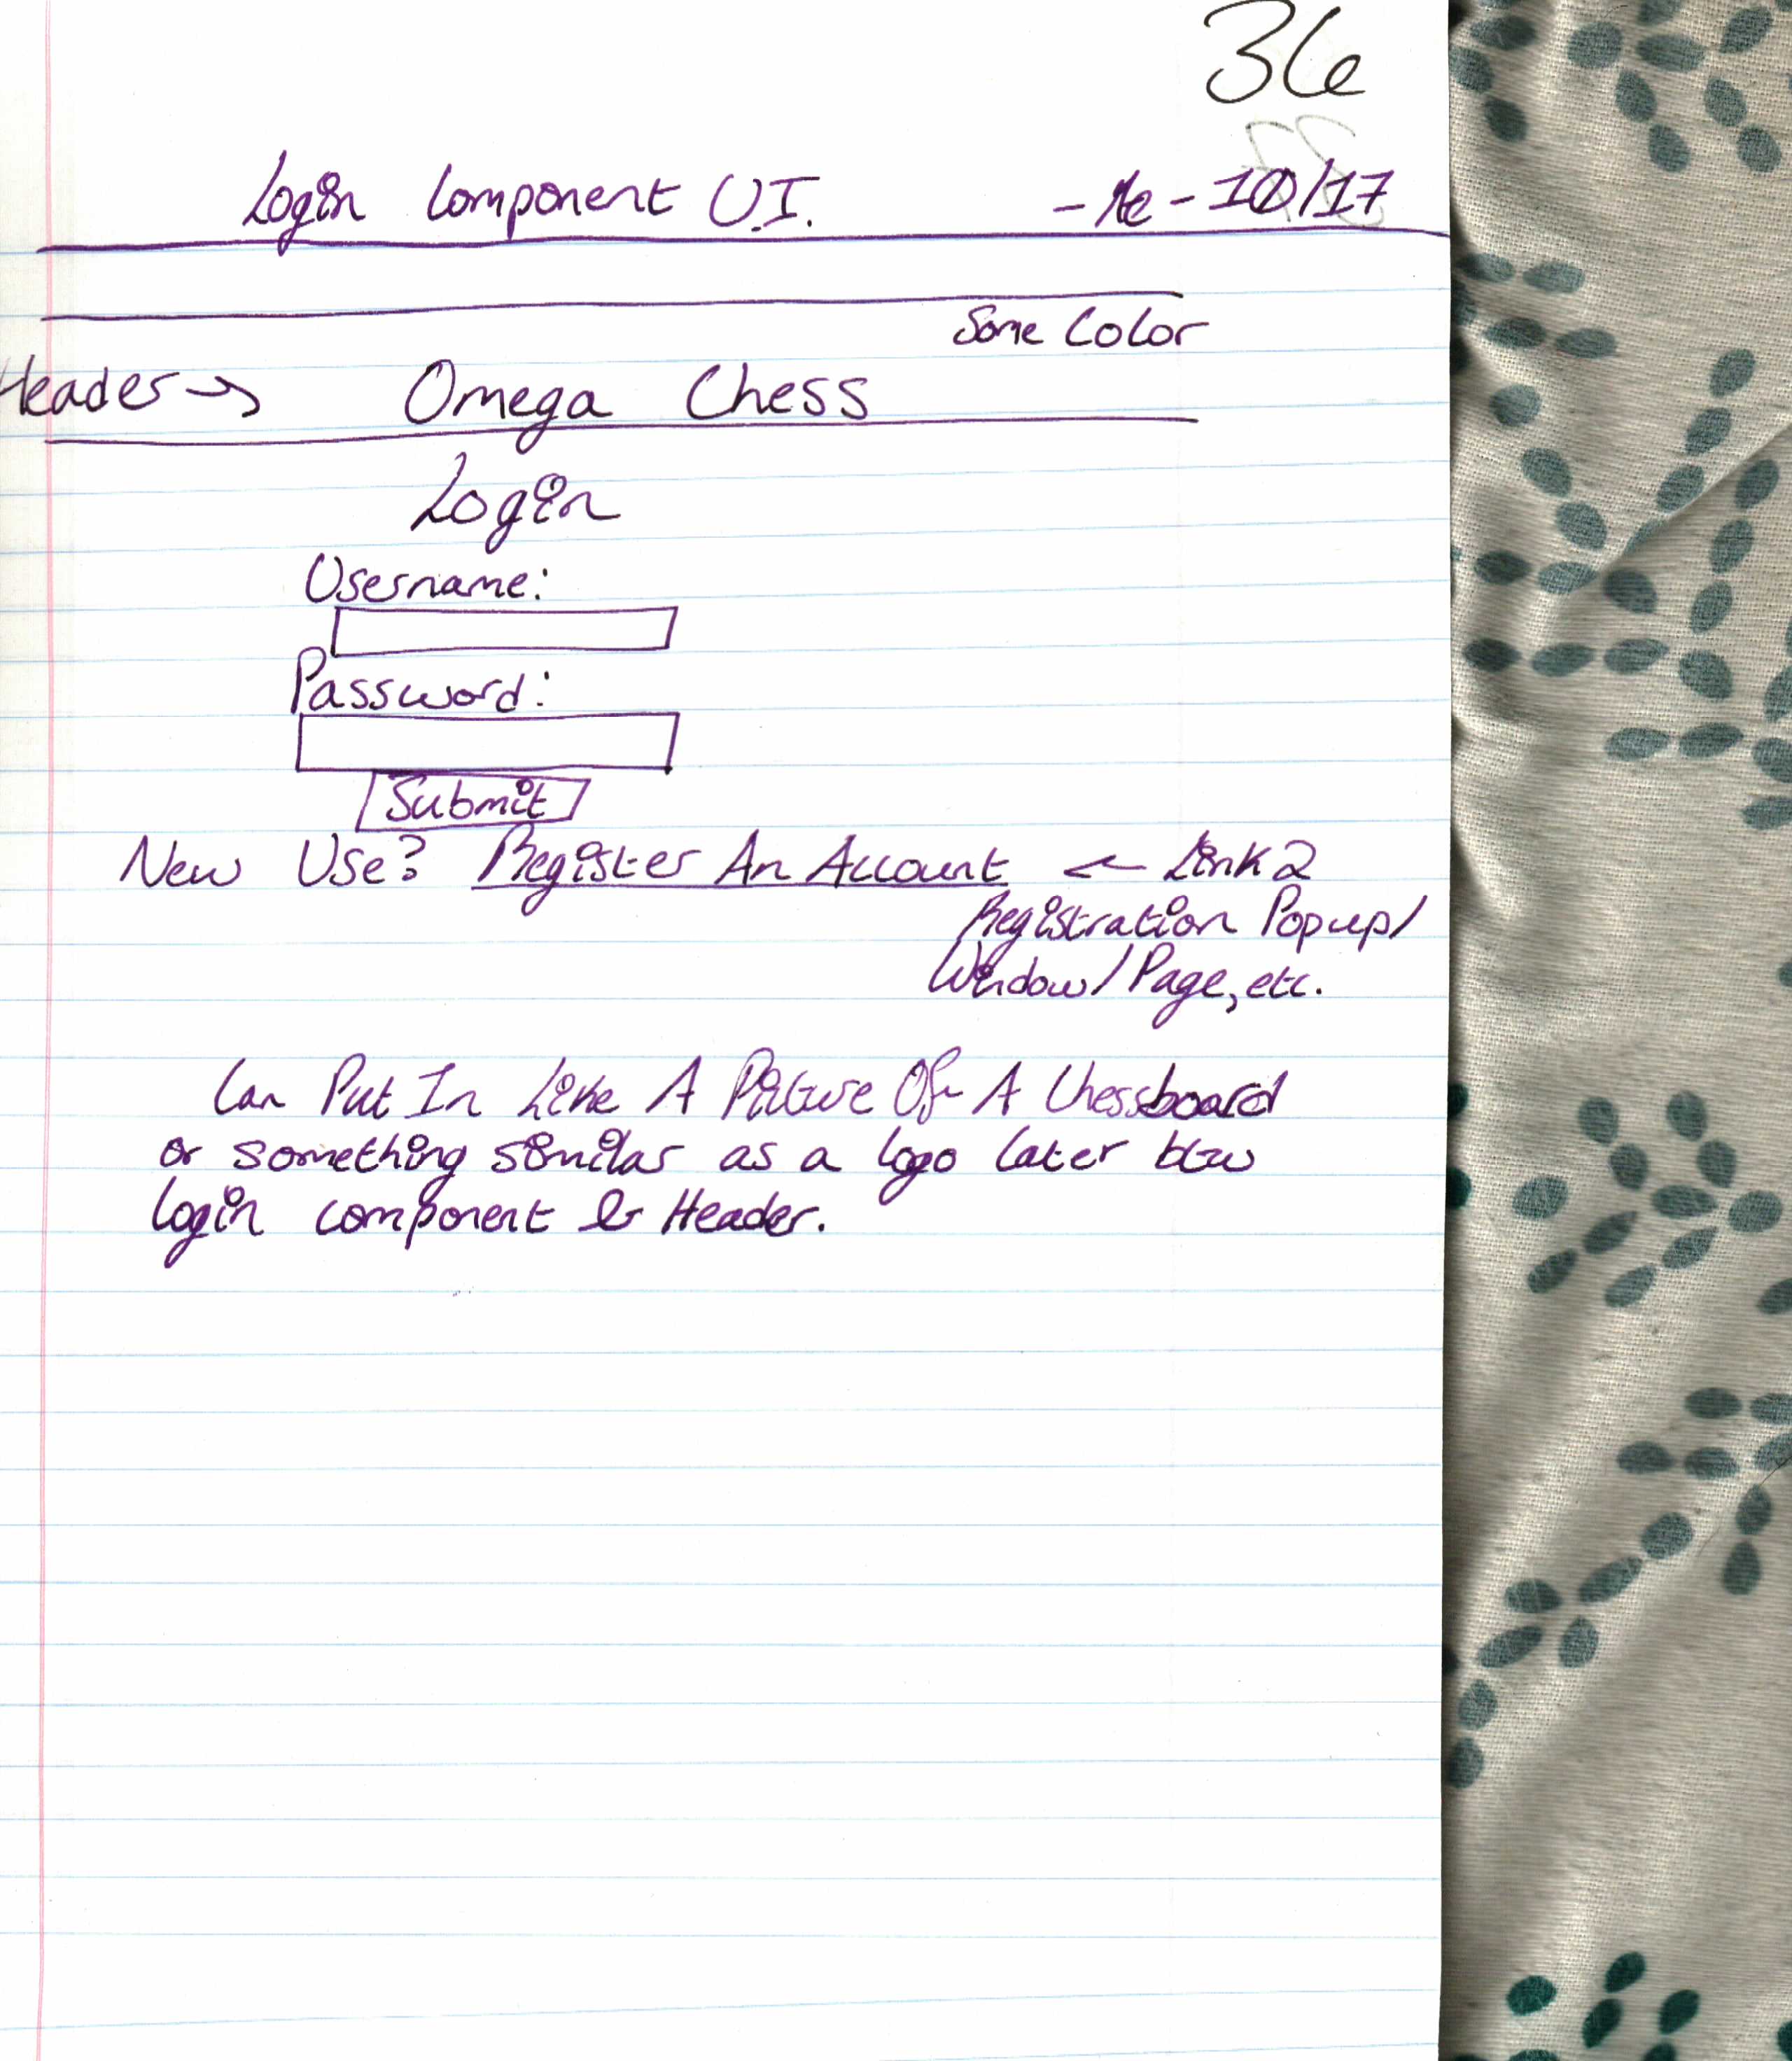 36
Login Component U.I. - Me - 10/17
Some Color
Header → Omega Chess
Login
Username:
Password:
Submit
New Use? Register An Account ← Link 2
Registration Popup/
Window/Page, etc.
Can Put In Like A Picture Of A Chessboard
or something similar as a logo later btw
login component & Header.